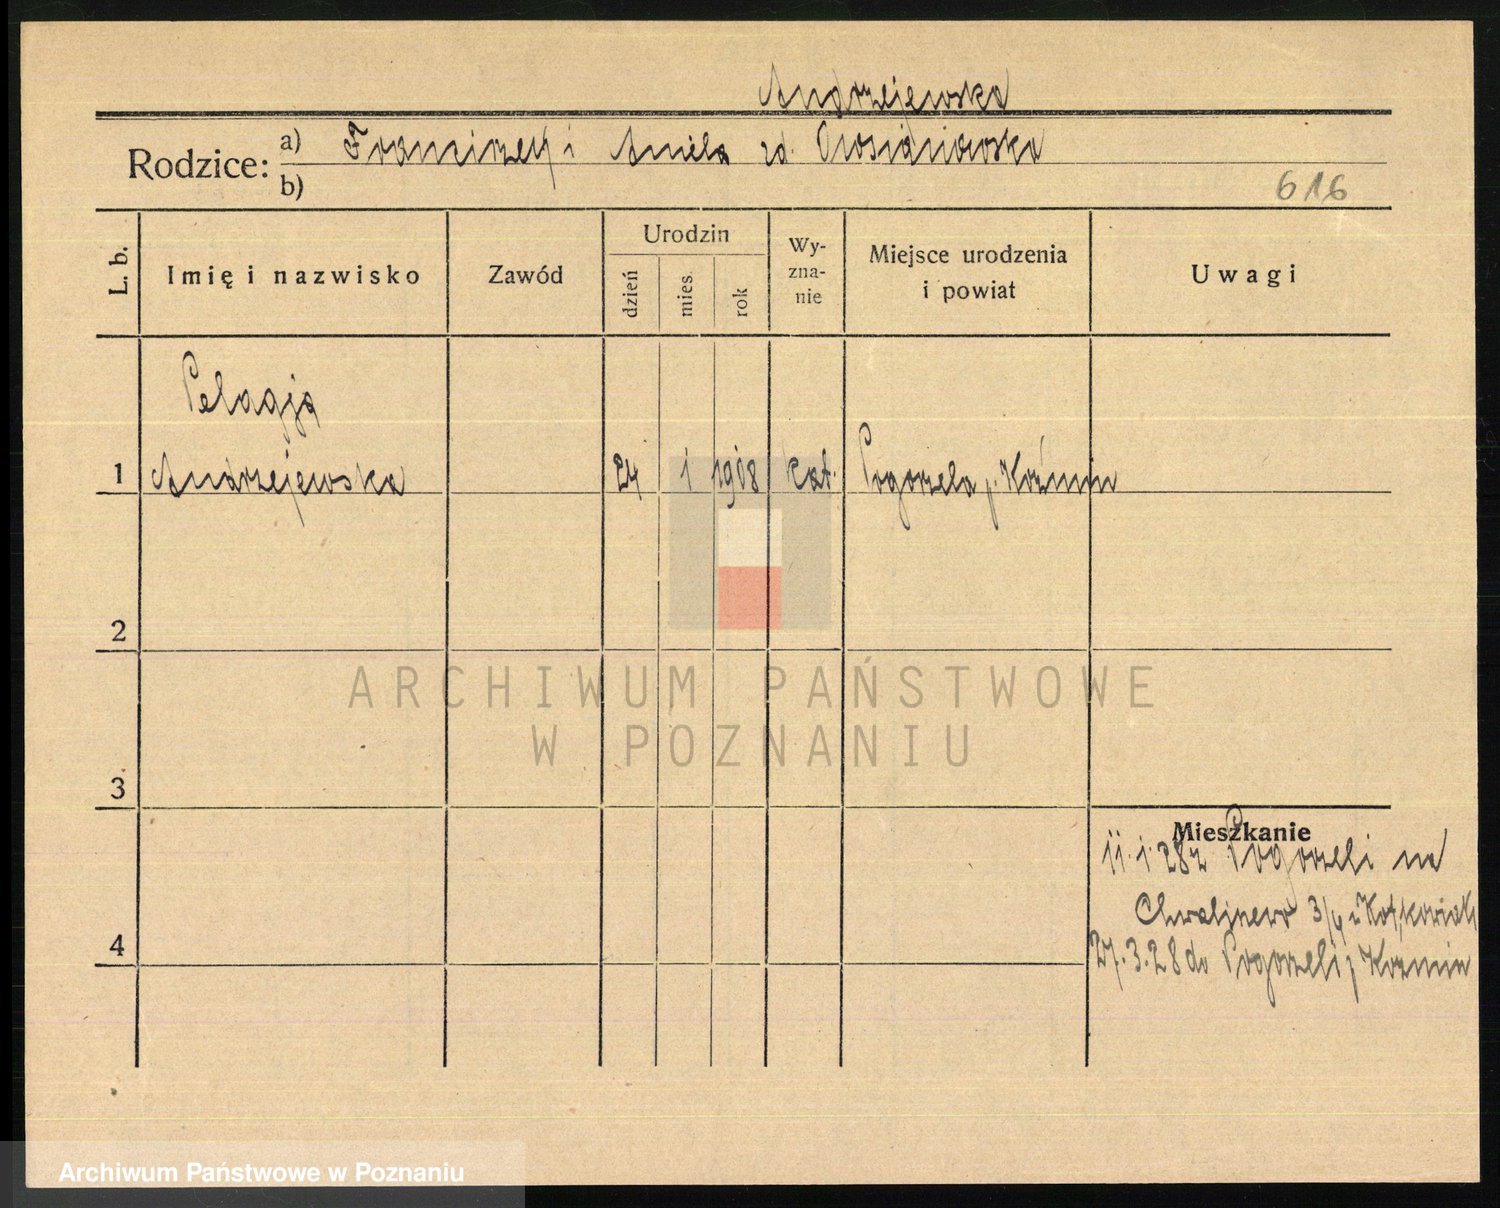 Andrzejewska
Rodzice: a) Franciszek i Aniela zd.
b)
616
L. b.
Imię i nazwisko
Zawód
Urodzin
dzień
mies.
rok
Wy-
zna-
nie
Miejsce urodzenia
i powiat
Uwagi
Pelagja
1 Andrzejewska 24 1 1908 kat. Pogorzela p. Koźmin
2
ARCHIWUM PAŃSTWOWE
W POZNANIU
3
Mieszkanie
11.1.28 z Pogorzeli na
Chwaliszewo 3/4 u
4
27.3.28 do Pogorzeli p Kozmin
Archiwum Państwowe w Poznaniu